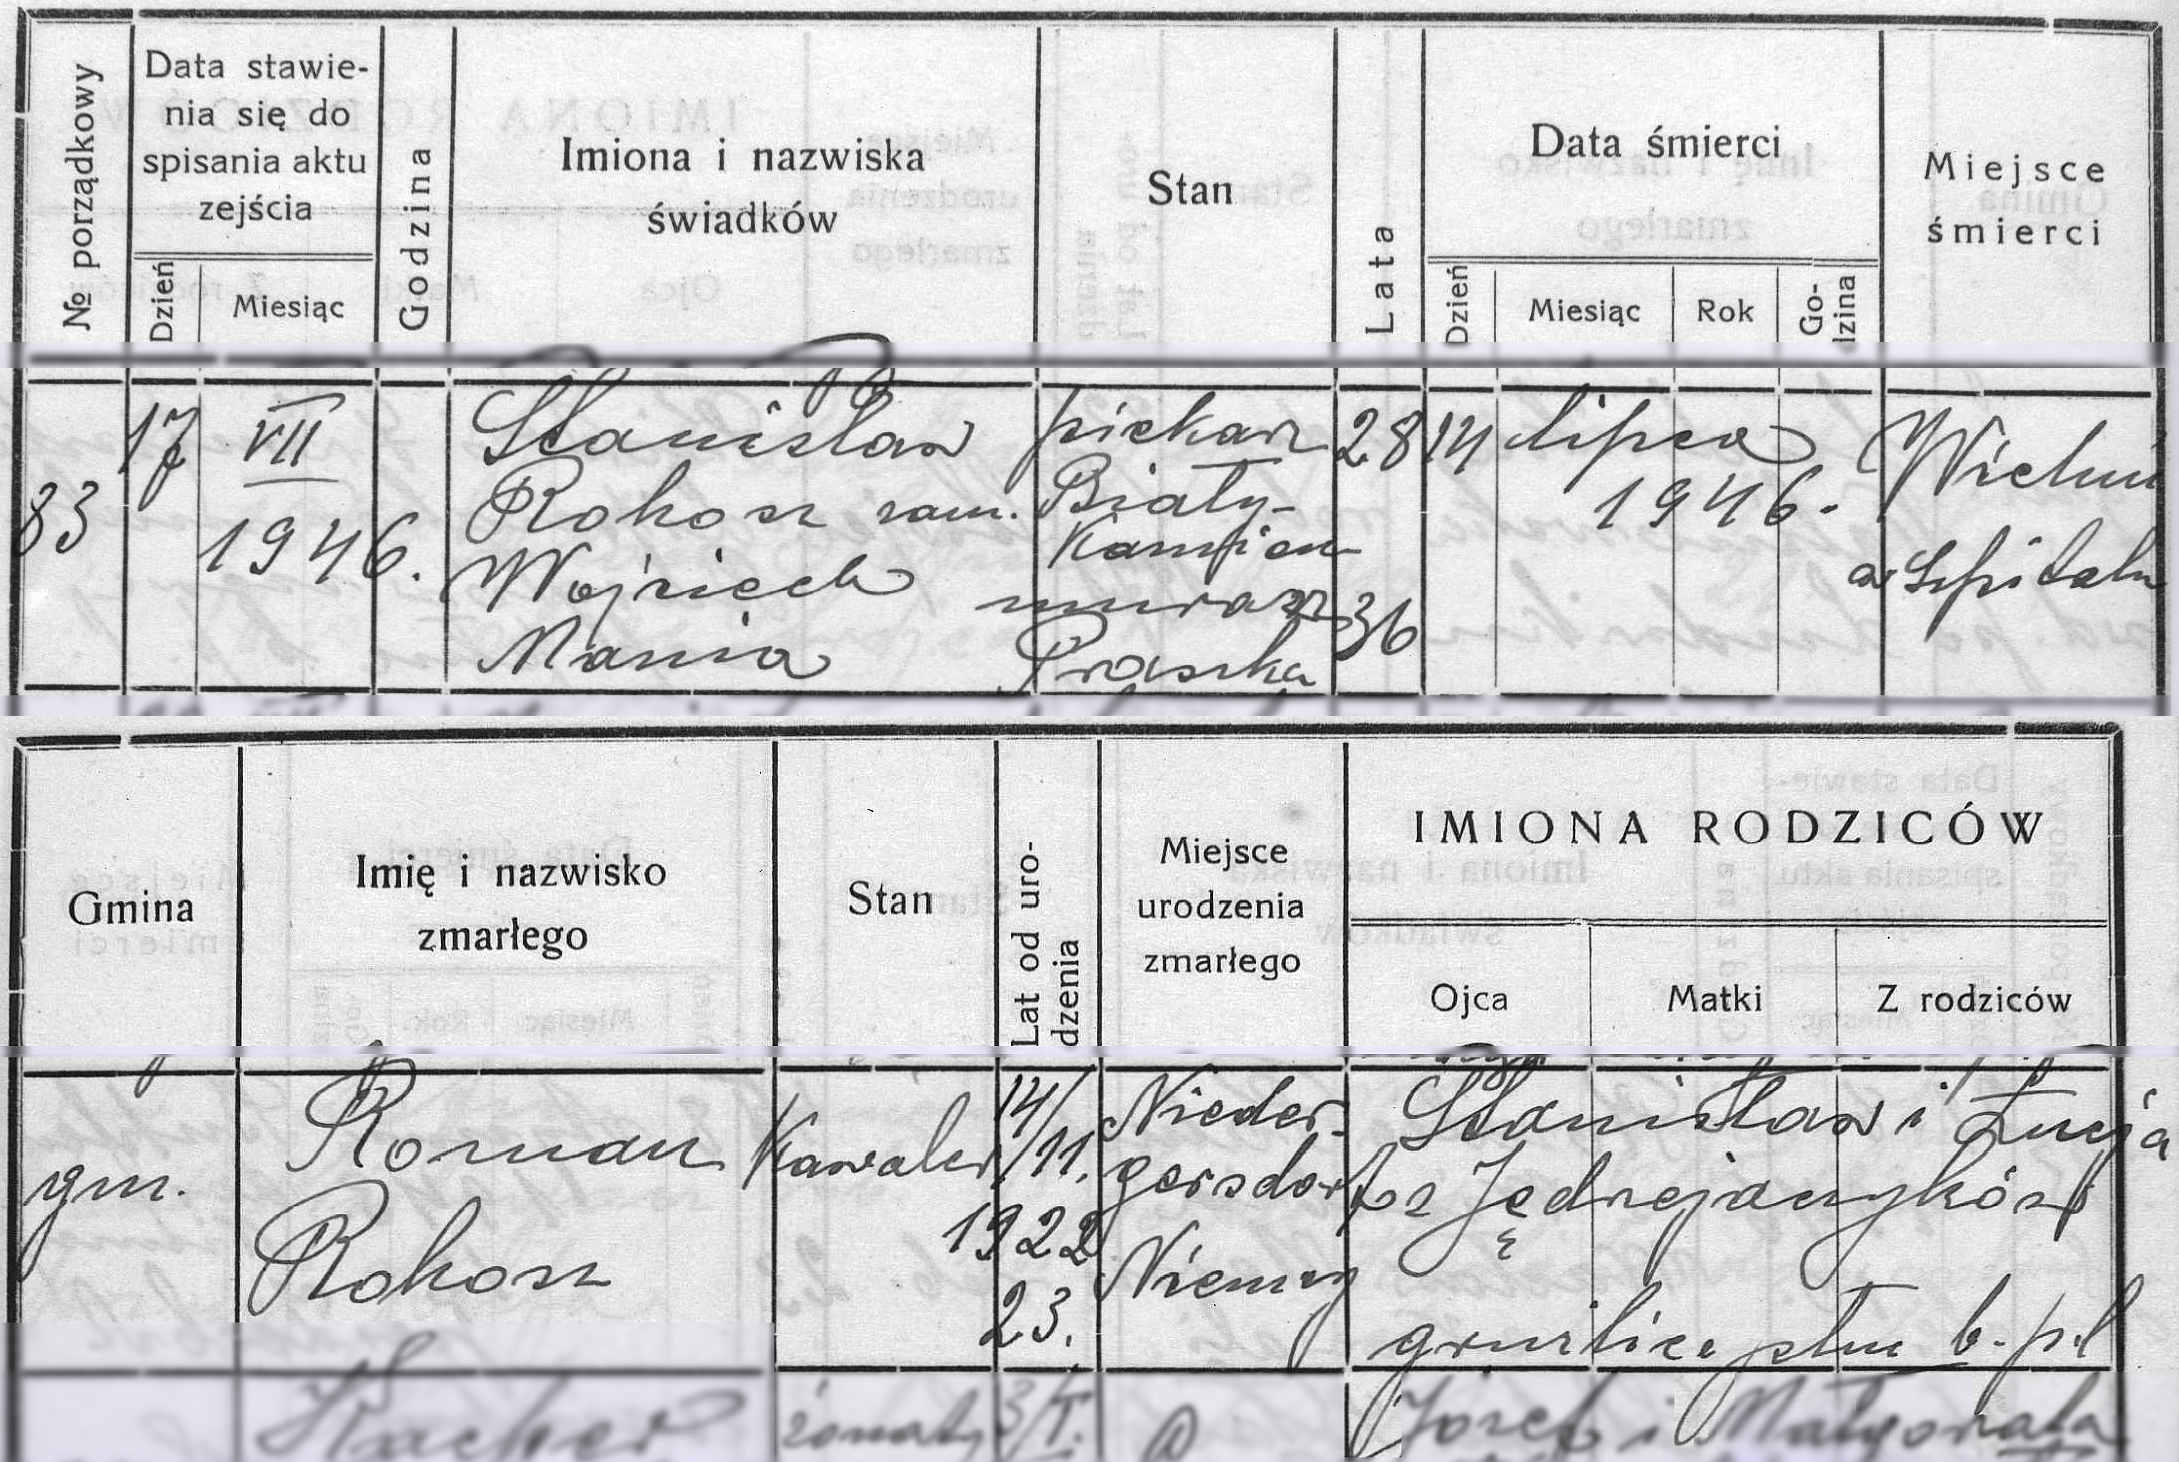 № porządkowy
Data stawie-
nia się do
spisania aktu
zejścia
Dzień
Miesiąc
Godzina
Imiona i nazwiska
świadków
Stan
Lata
Data śmierci
Dzień
Miesiąc
Rok
Go-
dzina
Miejsce
śmierci
83
17
VII
1946.
Stanisław
Rokosz zam.
Wojciech
Mania
piekarz
Biały-
Kamień
murarz
Praszka
28
36
14 lipca
1946.
Wieluń
w Szpitalu
Gmina
Imię i nazwisko
zmarłego
Stan
Lat od uro-
dzenia
Miejsce
urodzenia
zmarłego
IMIONA RODZICÓW
Ojca
Matki
Z rodziców
gm.
Roman
Rokosz
Kawaler
14/
/11.
1922
23.
Nieder-
gersdorf
Niemcy
Stanisław i Łucja
z Jędrzejaczyków
gruźlica płuc b. p.l
Kacper
żonaty
3/I.
Józef i Małgorzata